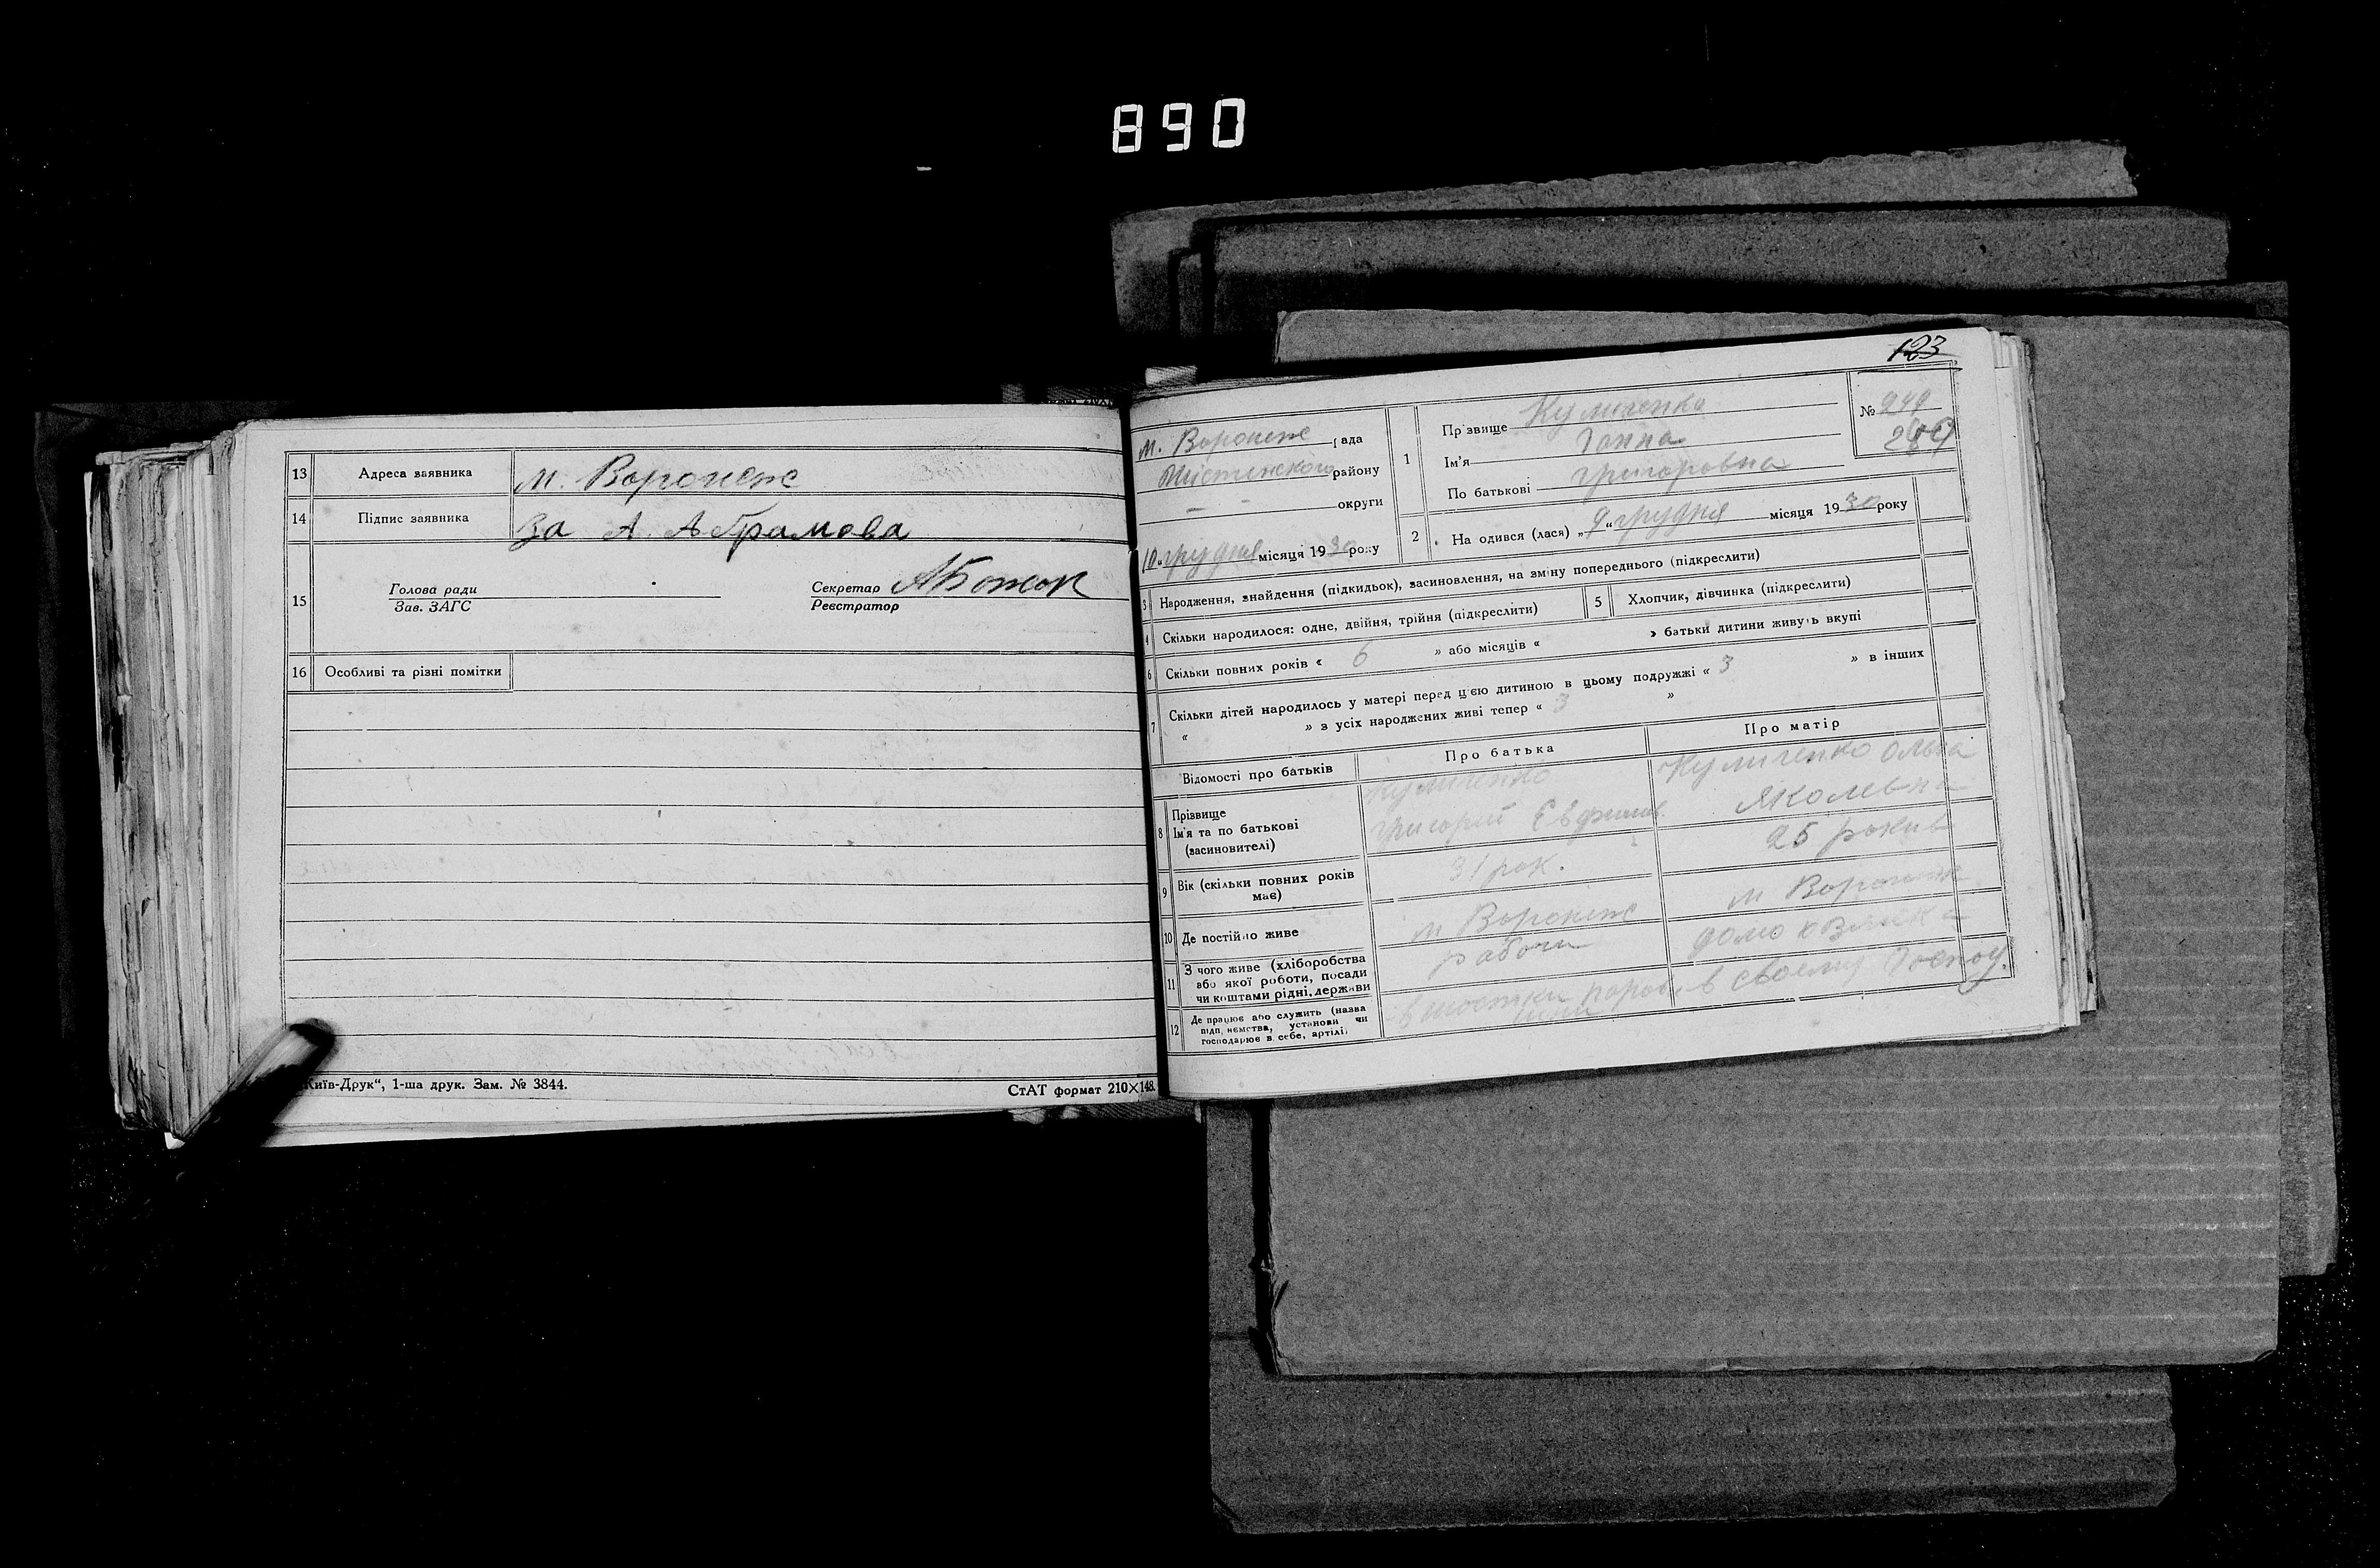 890
13 Адреса заявника м. Воронеж
14 Підпис заявника За А. Абрамова
15 Голова ради
Зав. ЗАГС
Секретар АБожок
Реєстратор
16 Особливі та різні помітки
Київ-Друк“, 1-ша друк. Зам. № 3844.
СтАТ формат 210×148.
123
м. Воронеж рада
району
— округи
10 „грудня місяця 1930 року
1 Прізвище
Ім'я Ганна
По батькові Григоровна
№ 249
2 Народився (лася) „9“ грудня місяця 1930 року
3 Народження, знайдення (підкидьок), засиновлення, на зміну попереднього (підкреслити)
4 Скільки народилося: одне, двійня, трійня (підкреслити)
5 Хлопчик, дівчинка (підкреслити)
6 Скільки повних років « 6 » або місяців « » батьки дитини живуть вкупі
7 Скільки дітей народилось у матері перед цією дитиною в цьому подружжі « 3 » в інших
« » з усіх народжених живі тепер « 3 »
Відомості про батьків
Про батька
Про матір
8 Прізвище
Ім'я та по батькові
(засиновителі)
Григорий Евфимов.
Ольга
Яковлевна
9 Вік (скільки повних років
має)
31 рок.
25 рокив
10 Де постійно живе
м Воронеж
м Воронеж
11 З чого живе (хліборобства
або якої роботи, посади
чи коштами рідні, держави
рабочи
12 Де працює або служить (назва
підприємства, установи чи
господарює в себе, артілі)
в своему господ.